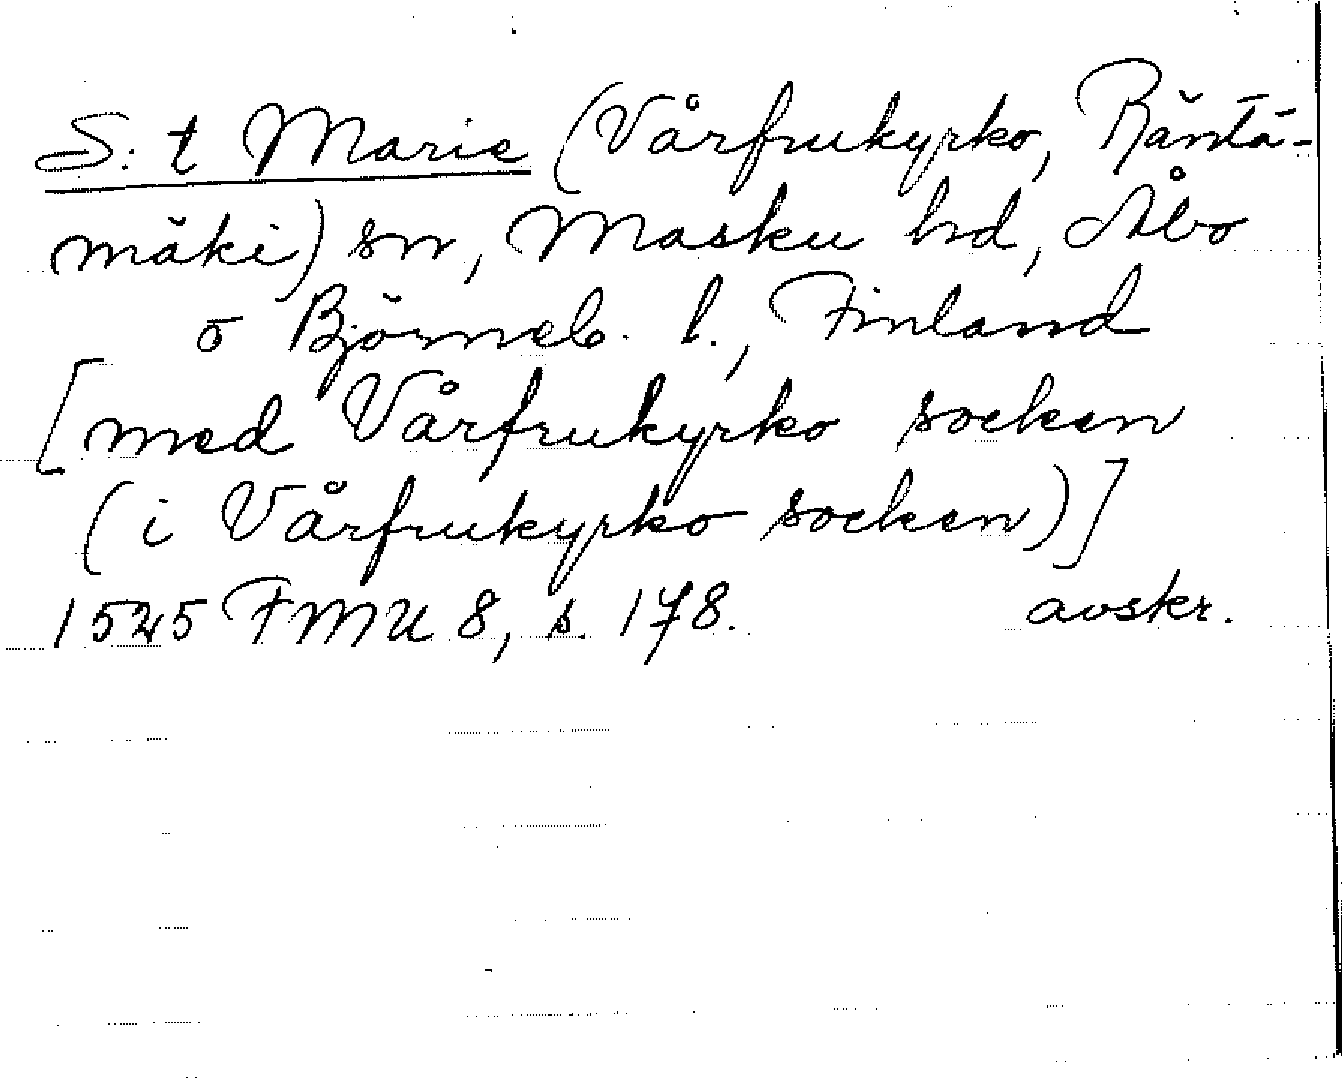 S:t Marie (Vårfrukyrko, Räntä-
mäki) sn, Masku hd, Åbo
o Björneb. l., Finland
[med Vårfrukyrko socken
(i Vårfrukyrko socken)]
1525 FMU 8, s. 178. avskr.